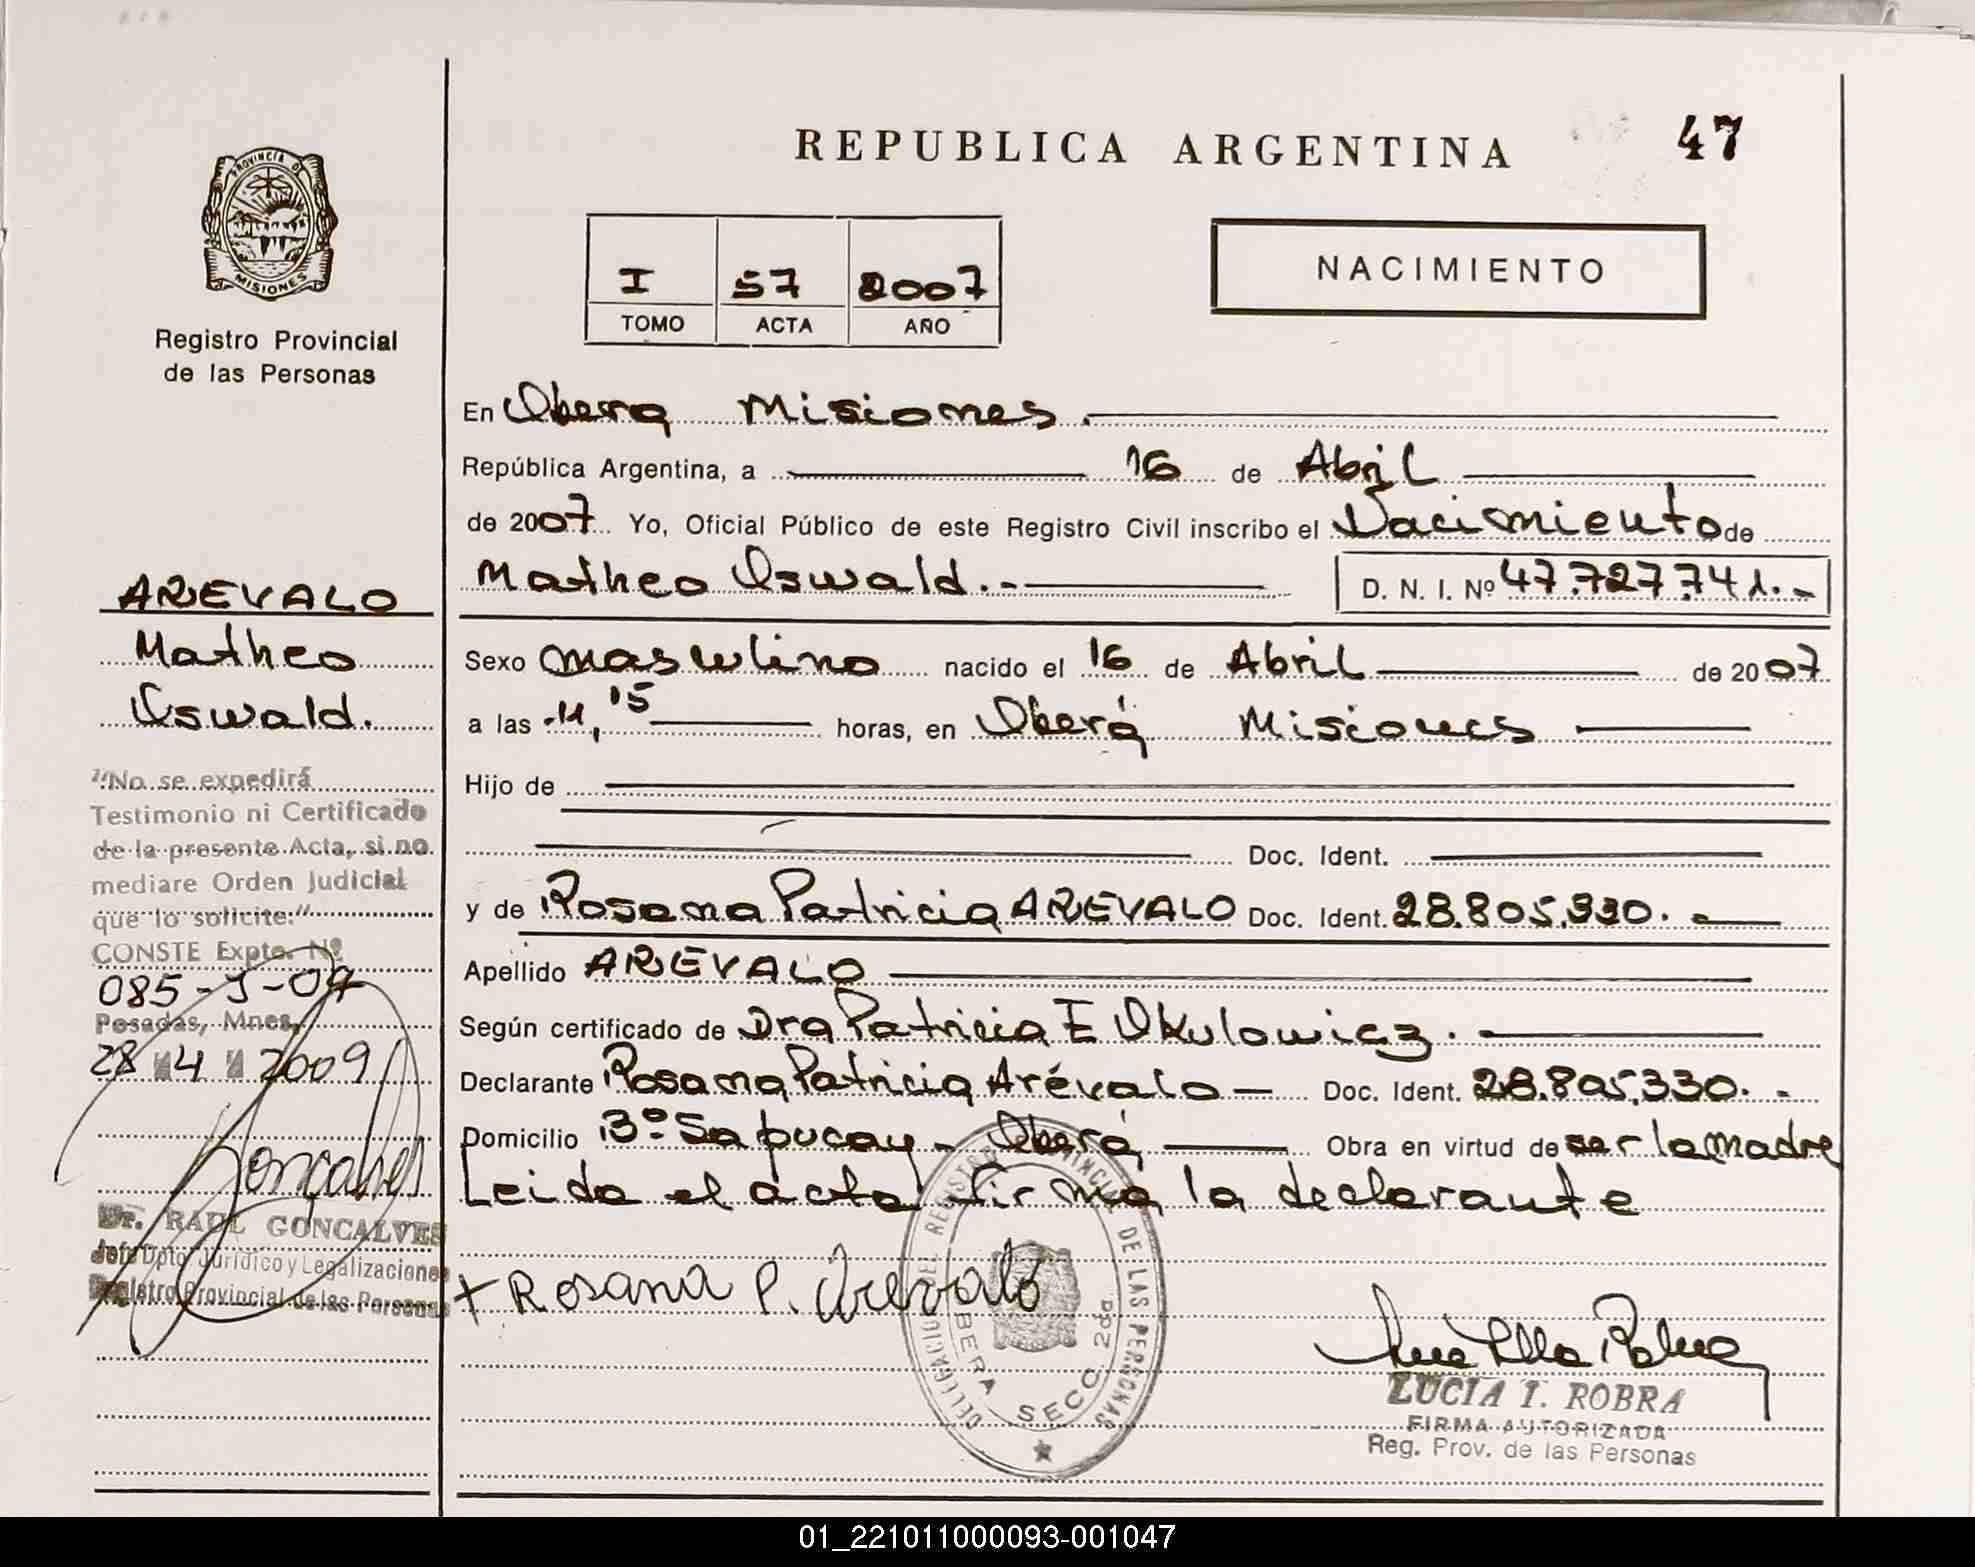 REPUBLICA ARGENTINA
47
PROVINCIA DE
MISIONES
Registro Provincial
de las Personas
I 57 2007
TOMO ACTA AÑO
NACIMIENTO
En Oberá Misiones.
República Argentina, a 16 de Abril
de 2007 Yo, Oficial Público de este Registro Civil inscribo el Nacimiento de
Matheo Oswald.-
D. N. I. Nº 47.727.741.-
Sexo masculino nacido el 16 de Abril de 2007
a las 11,15 horas, en Oberá Misiones
Hijo de
Doc. Ident.
y de Rosana Patricia AREVALO Doc. Ident. 28.805.330.-
Apellido AREVALO
Según certificado de Dra Patricia E Okulowicz.
Declarante Rosana Patricia Arévalo - Doc. Ident. 28.805.330.-
Domicilio Bº Sapucay - Oberá Obra en virtud de ser la madre
Leida el acta firma la declarante
+ Rosana P. Arevalo
DELEGACION DEL REGISTRO PROVINCIAL DE LAS PERSONAS
OBERA SECC. 2da
LUCIA I. ROBRA
FIRMA AUTORIZADA
Reg. Prov. de las Personas
AREVALO
Matheo
Oswald.
"No se expedirá
Testimonio ni Certificado
de la presente Acta, si no
mediare Orden Judicial
que lo solicite."
CONSTE Expte. Nº
085-J-09
Posadas, Mnes,
28 4 2009
Gonçalves
Dr. RAUL GONÇALVES
Jefe Dpto Jurídico y Legalizaciones
Registro Provincial de las Personas
01_221011000093-001047